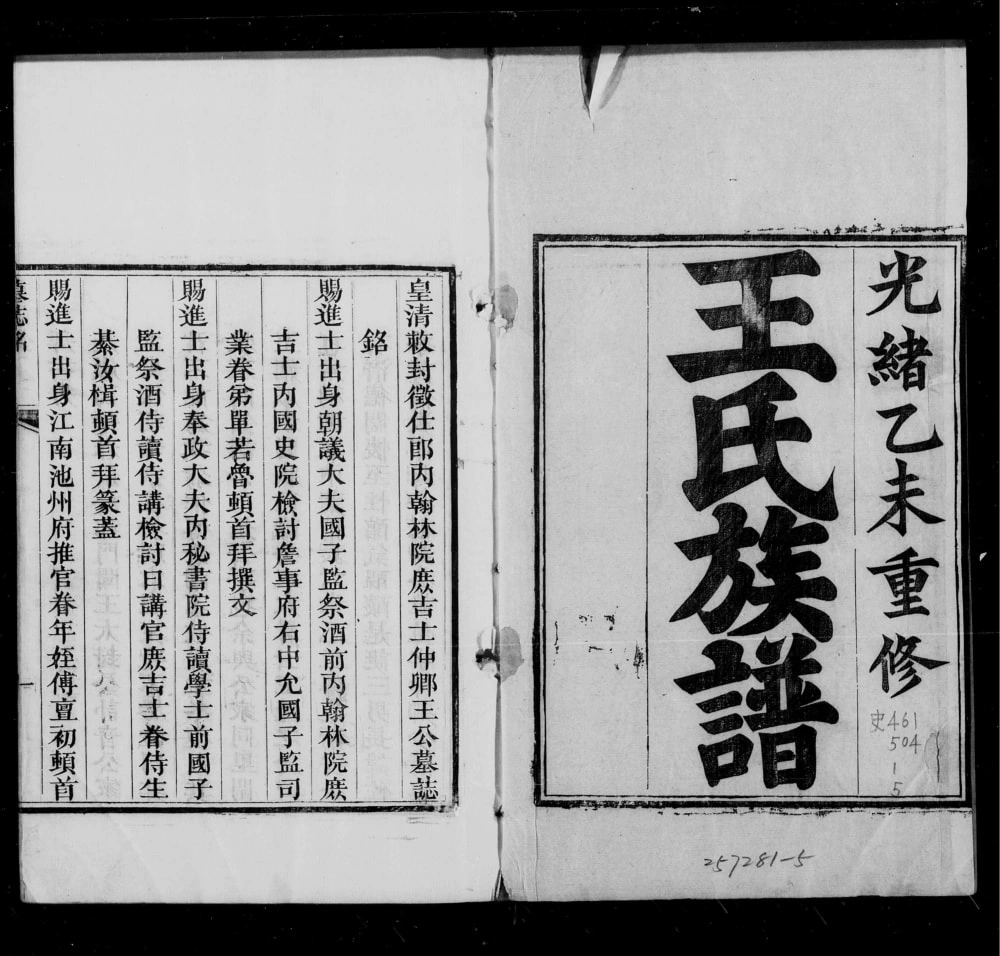 光緒乙未重修
王氏族譜
史461
504
1
5
257281-5
皇清敕封徵仕郎內翰林院庶吉士仲卿王公墓誌
銘
賜進士出身朝議大夫國子監祭酒前內翰林院庶
吉士內國史院檢討詹事府右中允國子監司
業眷弟單若魯頓首拜撰文
賜進士出身奉政大夫內秘書院侍讀學士前國子
監祭酒侍讀侍講檢討日講官庶吉士眷侍生
綦汝楫頓首拜篆蓋
賜進士出身江南池州府推官眷年姪傅亶初頓首
墓誌銘
一